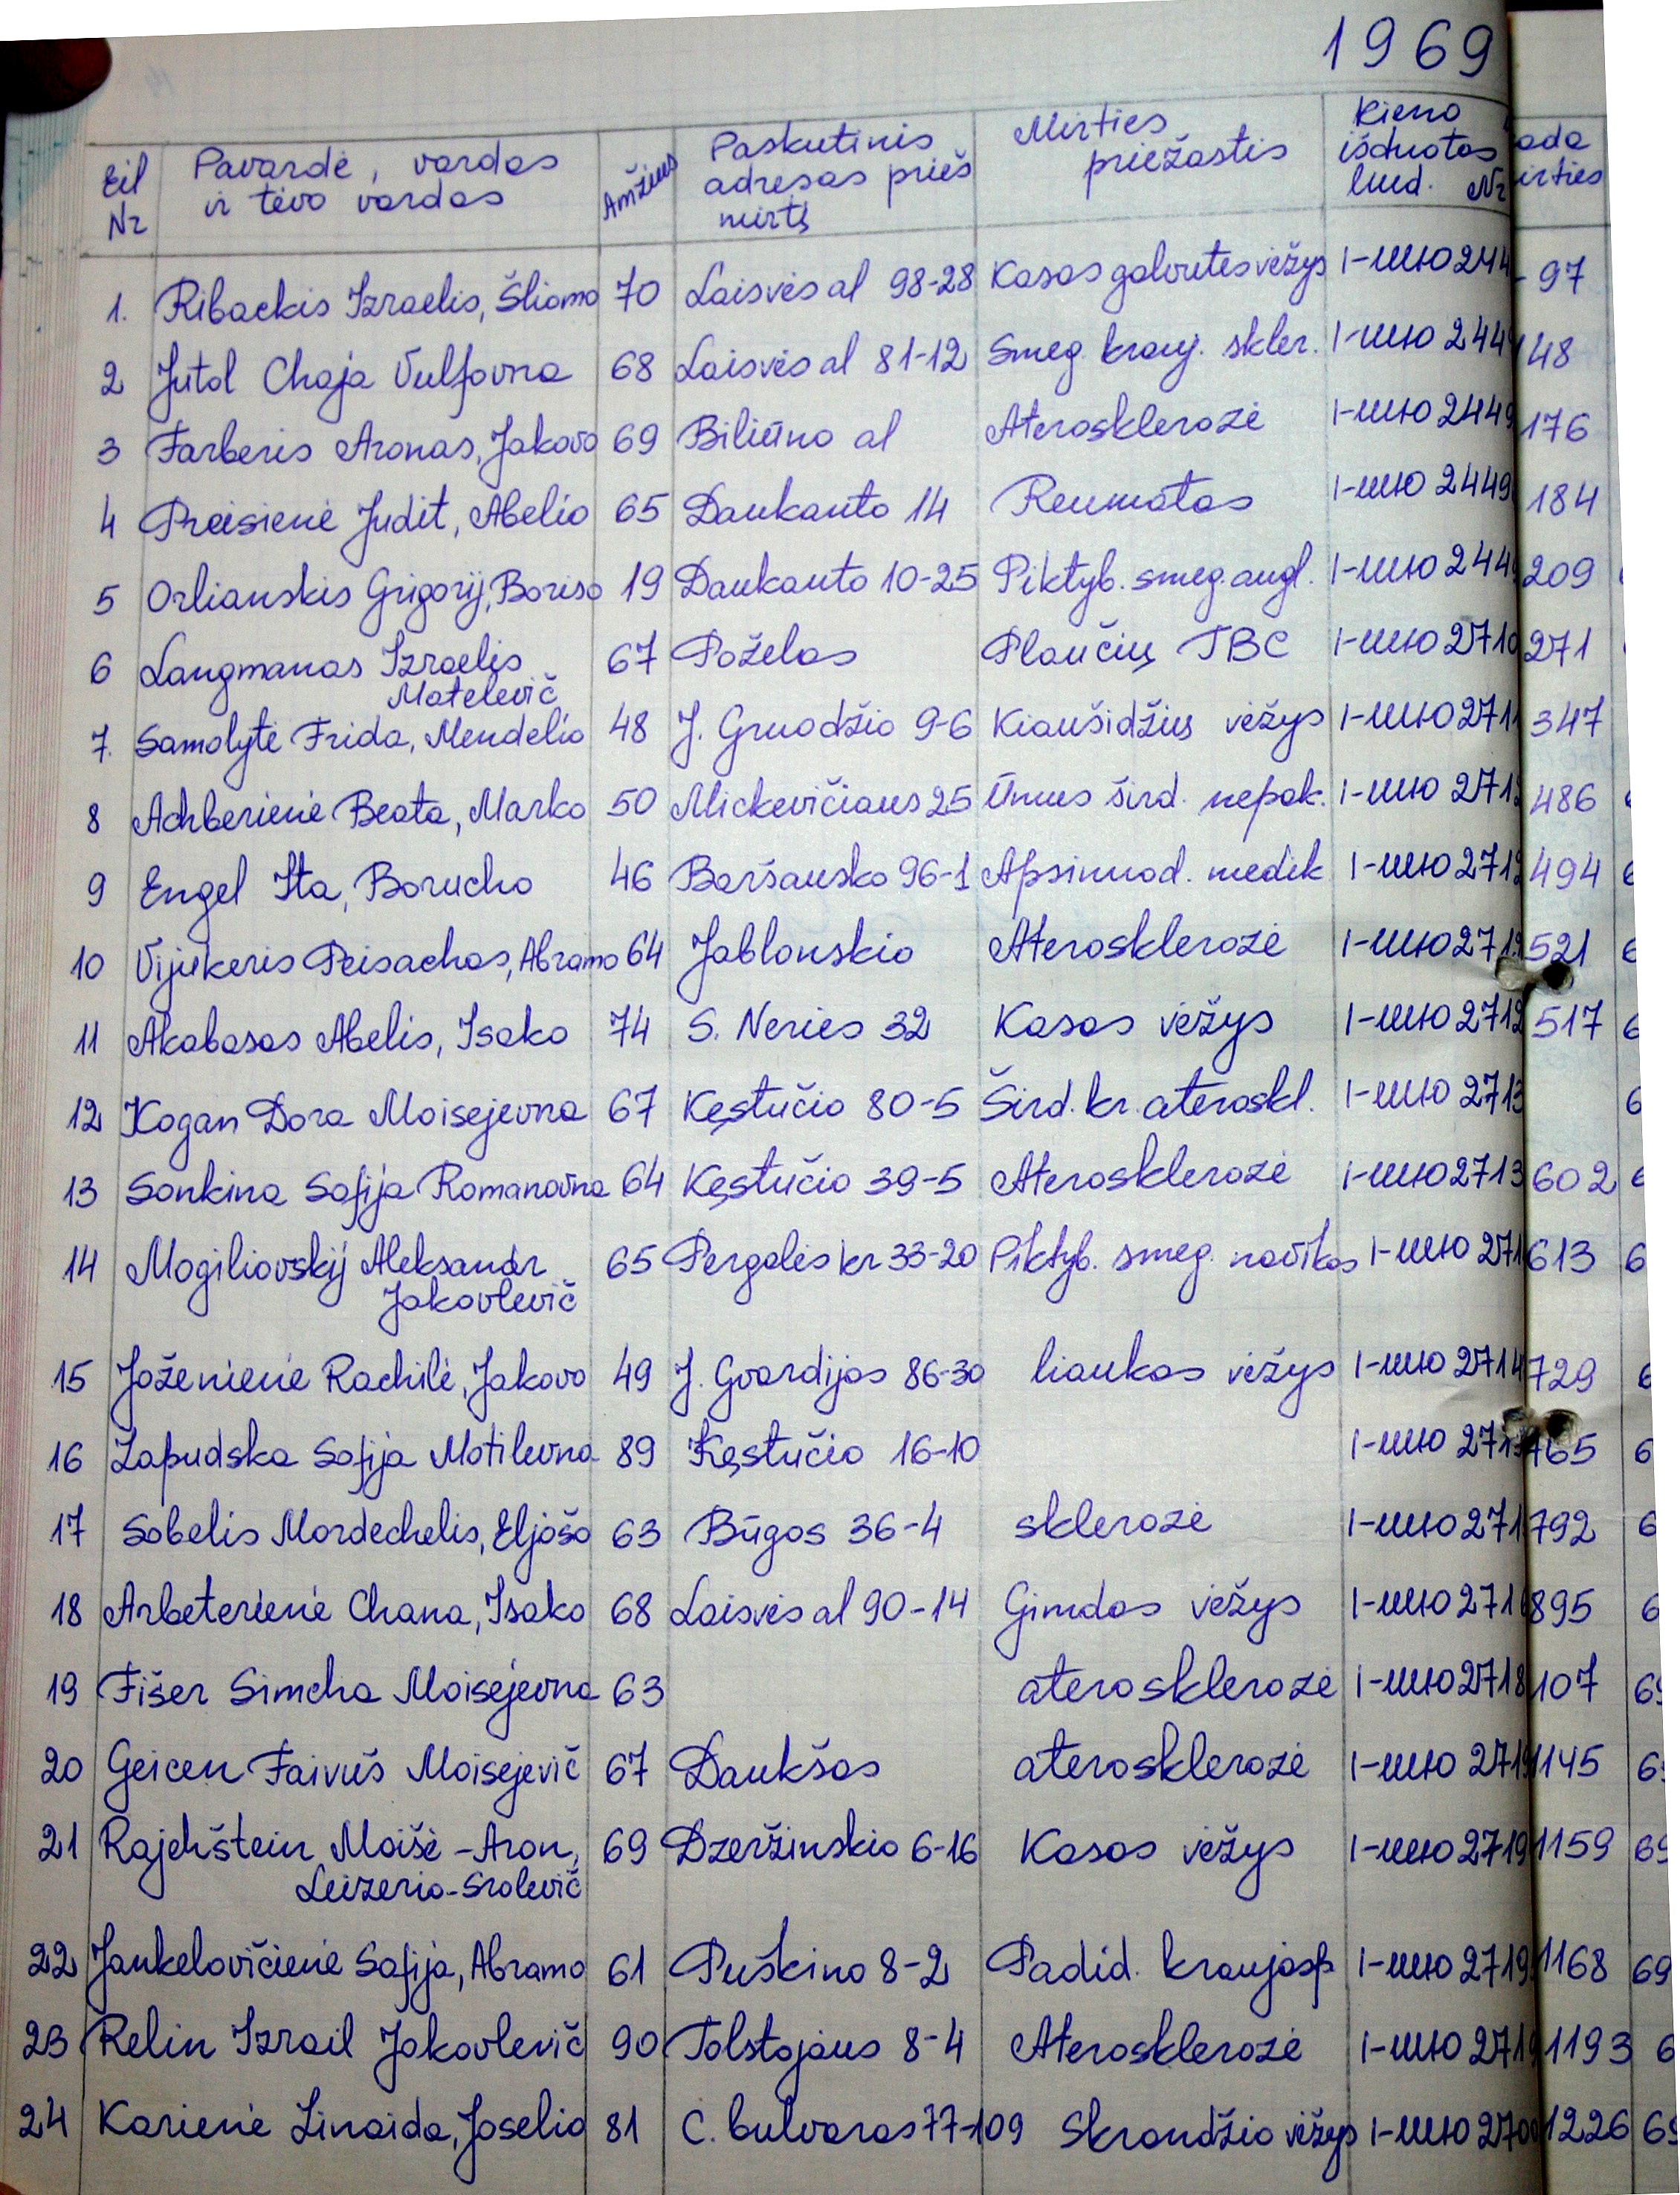 1969
Eil Nr Pavardė, vardas ir tėvo vardas Amžius Paskutinis adresas prieš mirtį Mirties priežastis Kieno išduotas liud. Nr
1. Ribackis Izraelis, Šliomo 70 Laisvės al 98-28 Kasos galvutės vėžys I-ШЮ 244 97
2 Jutol Chaja Vulfovna 68 Laisvės al 81-12 Smeg krauj. skler. I-ШЮ 244 148
3 Farberis Aronas, Jakovo 69 Biliūno al Aterosklerozė I-ШЮ 2449 176
4 Preisienė Judit, Abelio 65 Daukanto 14 Reumatas I-ШЮ 2449 184
5 Orlianskis Grigorij, Boriso 19 Daukanto 10-25 Piktyb. smeg. augl. I-ШЮ 244 209
6 Langmanas Izraelis 67 Poželos Plaučių TBC I-ШЮ 2710 271
Motelevič
7. Samolytė Frida, Mendelio 48 J. Gruodžio 9-6 Kiaušidžių vėžys I-ШЮ 271 347
8 Achberienė Beata, Marko 50 Mickevičiaus 25 Ūmus šird. nepak. I-ШЮ 271 486
9 Engel Ita, Borucho 46 Baršausko 96-1 Apsinuod. medik I-ШЮ 2712 494
10 Vijukeris Peisachas, Abramo 64 Jablonskio Aterosklerozė I-ШЮ 271 521
11 Akabasas Abelis, Isako 74 S. Neries 32 Kasos vėžys I-ШЮ 2712 517
12 Kogan Dora Moisejevna 67 Kęstučio 80-5 Šird. kr. ateroskl. I-ШЮ 2713
13 Sonkina Sofija Romanovna 64 Kęstučio 39-5 Aterosklerozė I-ШЮ 2713 602
14 Mogiliovskij Aleksandr 65 Pergalės kr 33-20 Piktyb. smeg. navikas I-ШЮ 271 613
Jakovlevič
15 Joženienė Rachilė, Jakovo 49 J. Gvardijos 86-30 liaukos vėžys I-ШЮ 2714 729
16 Zapudska Sofija Motilevna 89 Kęstučio 16-10 I-ШЮ 271 765
17 Sobelis Mordechelis, Eljošo 63 Būgos 36-4 sklerozė I-ШЮ 271 792
18 Arbeterienė Chana, Isako 68 Laisvės al 90-14 Gimdos vėžys I-ШЮ 271 895
19 Fišer Simcha Moisejevna 63 aterosklerozė I-ШЮ 2718 107
20 Geicen Faivuš Moisejevič 67 Daukšos aterosklerozė I-ШЮ 2719 1145
21 Rajchštein Moišė-Aron, 69 Dzeržinskio 6-16 Kasos vėžys I-ШЮ 2719 1159
Leizerio-Srolevič
22 Jankelovičienė Sofija, Abramo 61 Puškino 8-2 Padid. kraujosp I-ШЮ 2719 1168 69
23 Relin Izrail Jakovlevič 90 Tolstojaus 8-4 Aterosklerozė I-ШЮ 271 1193
24 Karienė Zinaida, Joselio 81 C. bulvaras 77-109 Skrandžio vėžys I-ШЮ 270 1226